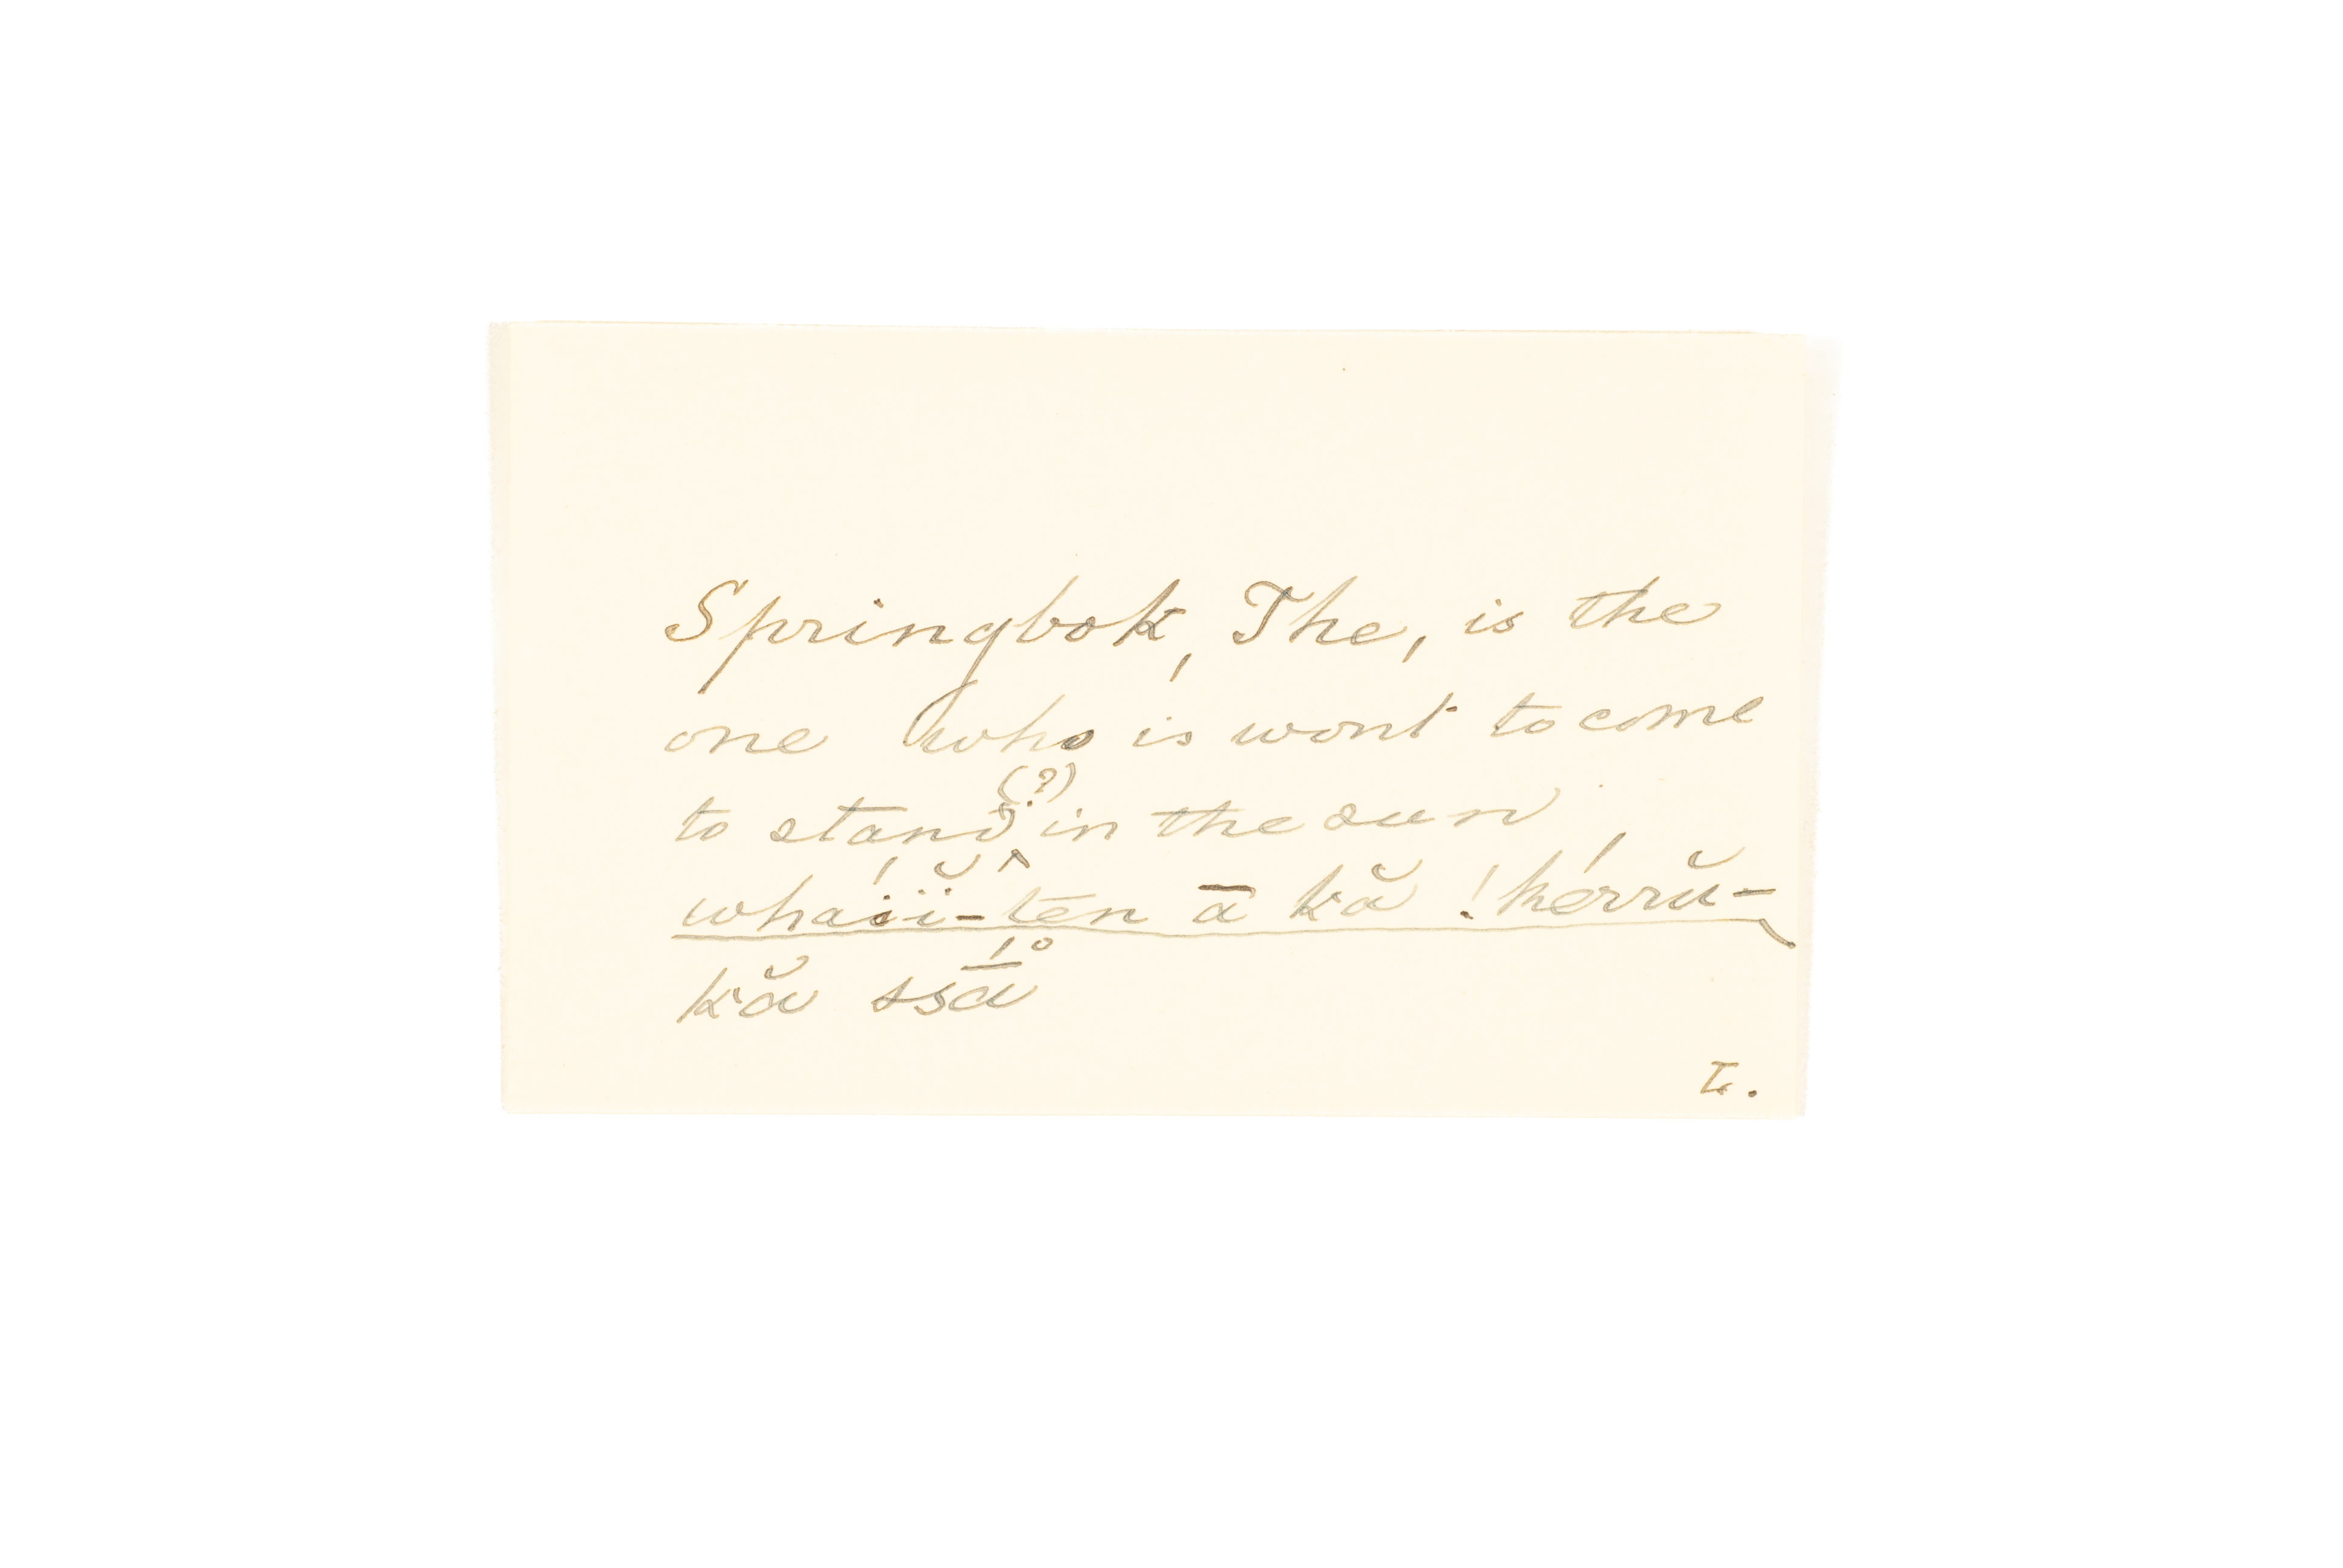 Springbok, The, is the
one who is wont to come
to stand (?) in the sun
whaíĭ-tĕn ā kă !hérrŭ-
kă ssā́°
L.